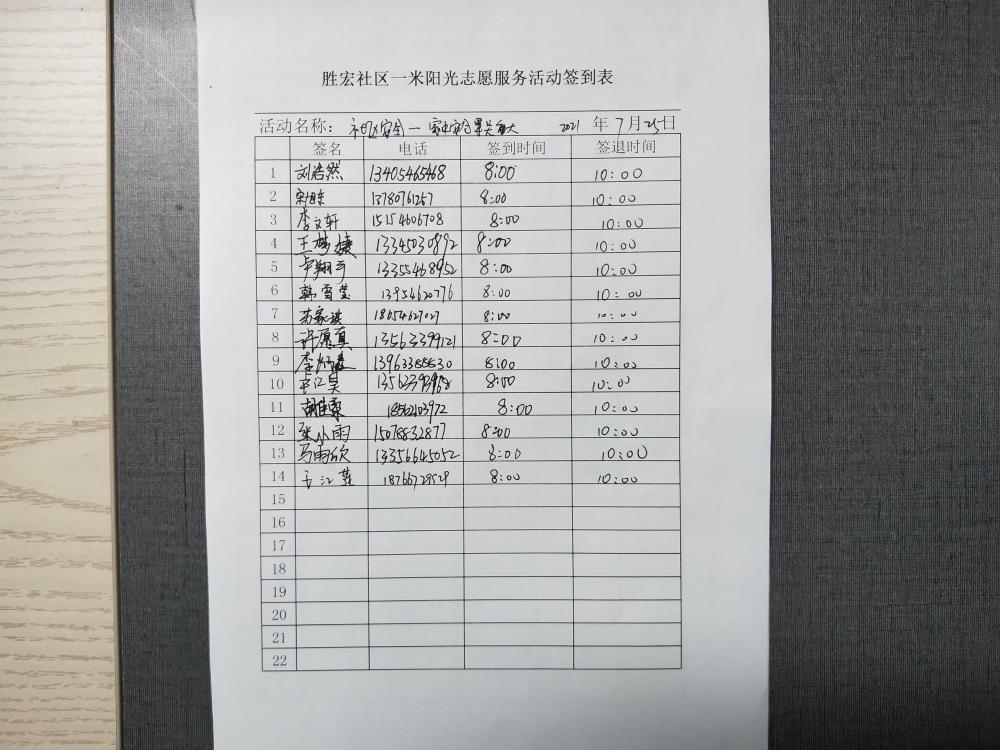 胜宏社区一米阳光志愿服务活动签到表
活动名称： 社区安全一 2021 年 7 月 25 日
签名 电话 签到时间 签退时间
1 刘浩然 13405465468 8:00 10:00
2 13780761257 8:00 10:00
3 李文轩 15154606708 8:00 10:00
4 王梦婕 13345030892 8:00 10:00
5 13355468952 8:00 10:00
6 韩雪莹 13954620776 8:00 10:00
7 苏家祺 18654627027 8:00 10:00
8 许愿真 13563399121 8:00 10:00
9 8:00 10:00
10 8:00 10:00
11 8:00 10:00
12 张小雨 15078832877 8:00 10:00
13 马雨欣 13356645052 8:00 10:00
14 18766729529 8:00 10:00
15
16
17
18
19
20
21
22